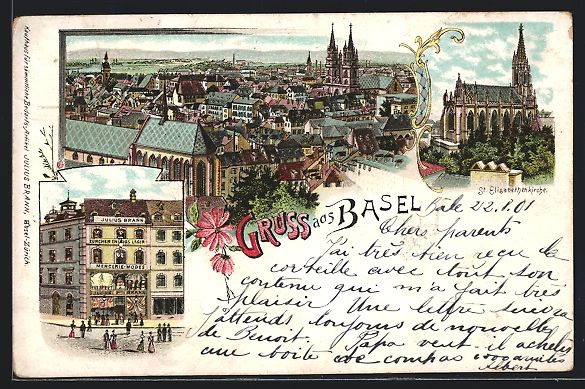 Kaufhaus für sämmtliche Bedarfsartikel JULIUS BRANN, Basel-Zürich
St. Elisabethenkirche.
JULIUS BRANN
ZÜRCHER ENGROS LAGER
MERCERIE MODES
GRUSS aus BASEL
Bâle 22.1.01
Chers parents
J'ai très bien reçu la
corbeille avec tout son
contenu qui m'a fait très
plaisir Une lettre suivra
J'attends toujours de nouvelles
de Benoit. Papa veut-il acheter
une boîte de compas
Albert